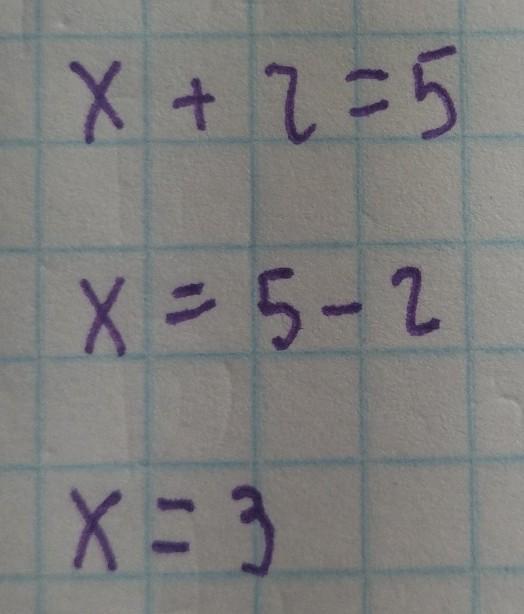 x + 2 = 5
x = 5 - 2
x = 3